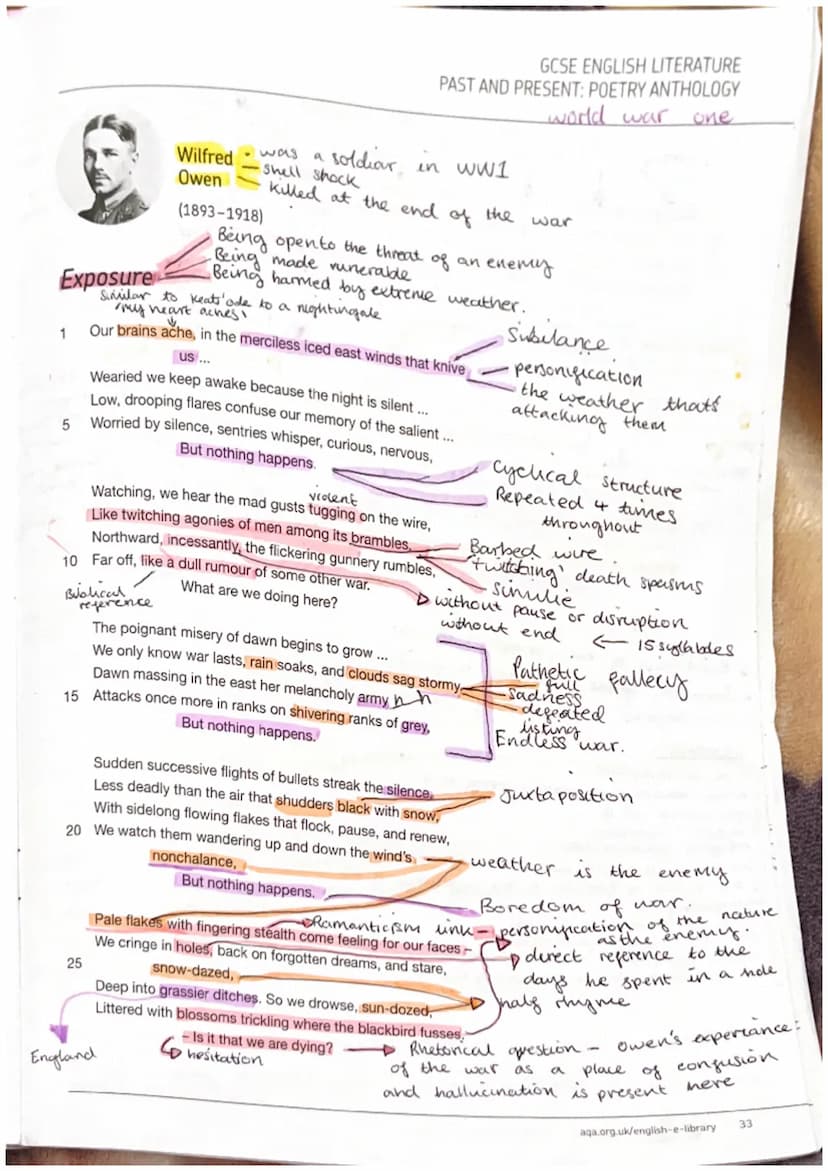 GCSE ENGLISH LITERATURE
PAST AND PRESENT: POETRY ANTHOLOGY
world war one
Wilfred
Owen
(1893–1918)
• was a soldiar in WW1
– shell shock
– killed at the end of the war
Being open to the threat of an enemy
Being made vunerable
Being harmed by extreme weather.
Exposure
Similar to Keat' ode to a nightingale
'my heart aches'
1 Our brains ache, in the merciless iced east winds that knive
us ...
Sibilance
personification
the weather thats
attacking them
Wearied we keep awake because the night is silent ...
Low, drooping flares confuse our memory of the salient ...
5 Worried by silence, sentries whisper, curious, nervous,
But nothing happens.
Cyclical structure
Repeated 4 times
throughout
violent
Watching, we hear the mad gusts tugging on the wire,
Like twitching agonies of men among its brambles.
Northward, incessantly, the flickering gunnery rumbles,
10 Far off, like a dull rumour of some other war.
What are we doing here?
Barbed wire
'twitching' death spasms
simulie
without pause or disruption
without end
← 15 syllables
Biblical
reference
The poignant misery of dawn begins to grow ...
We only know war lasts, rain soaks, and clouds sag stormy.
Dawn massing in the east her melancholy army
15 Attacks once more in ranks on shivering ranks of grey,
But nothing happens.
Pathetic fallecy
full
sadness
defeated
listing
Endless war.
Sudden successive flights of bullets streak the silence.
Less deadly than the air that shudders black with snow,
With sidelong flowing flakes that flock, pause, and renew,
20 We watch them wandering up and down the wind's
nonchalance,
But nothing happens.
Juxtaposition
weather is the enemy
Boredom of war.
Pale flakes with fingering stealth come feeling for our faces –
We cringe in holes, back on forgotten dreams, and stare,
25 snow-dazed,
Deep into grassier ditches. So we drowse, sun-dozed,
Littered with blossoms trickling where the blackbird fusses.
– Is it that we are dying?
Ramanticism link – personification of the nature
as the enemy.
direct reference to the
days he spent in a hole
half rhyme
England
hesitation
Rhetorical question – Owen's experiance:
of the war as a place of confusion
and hallucination is present here
aqa.org.uk/english-e-library 33